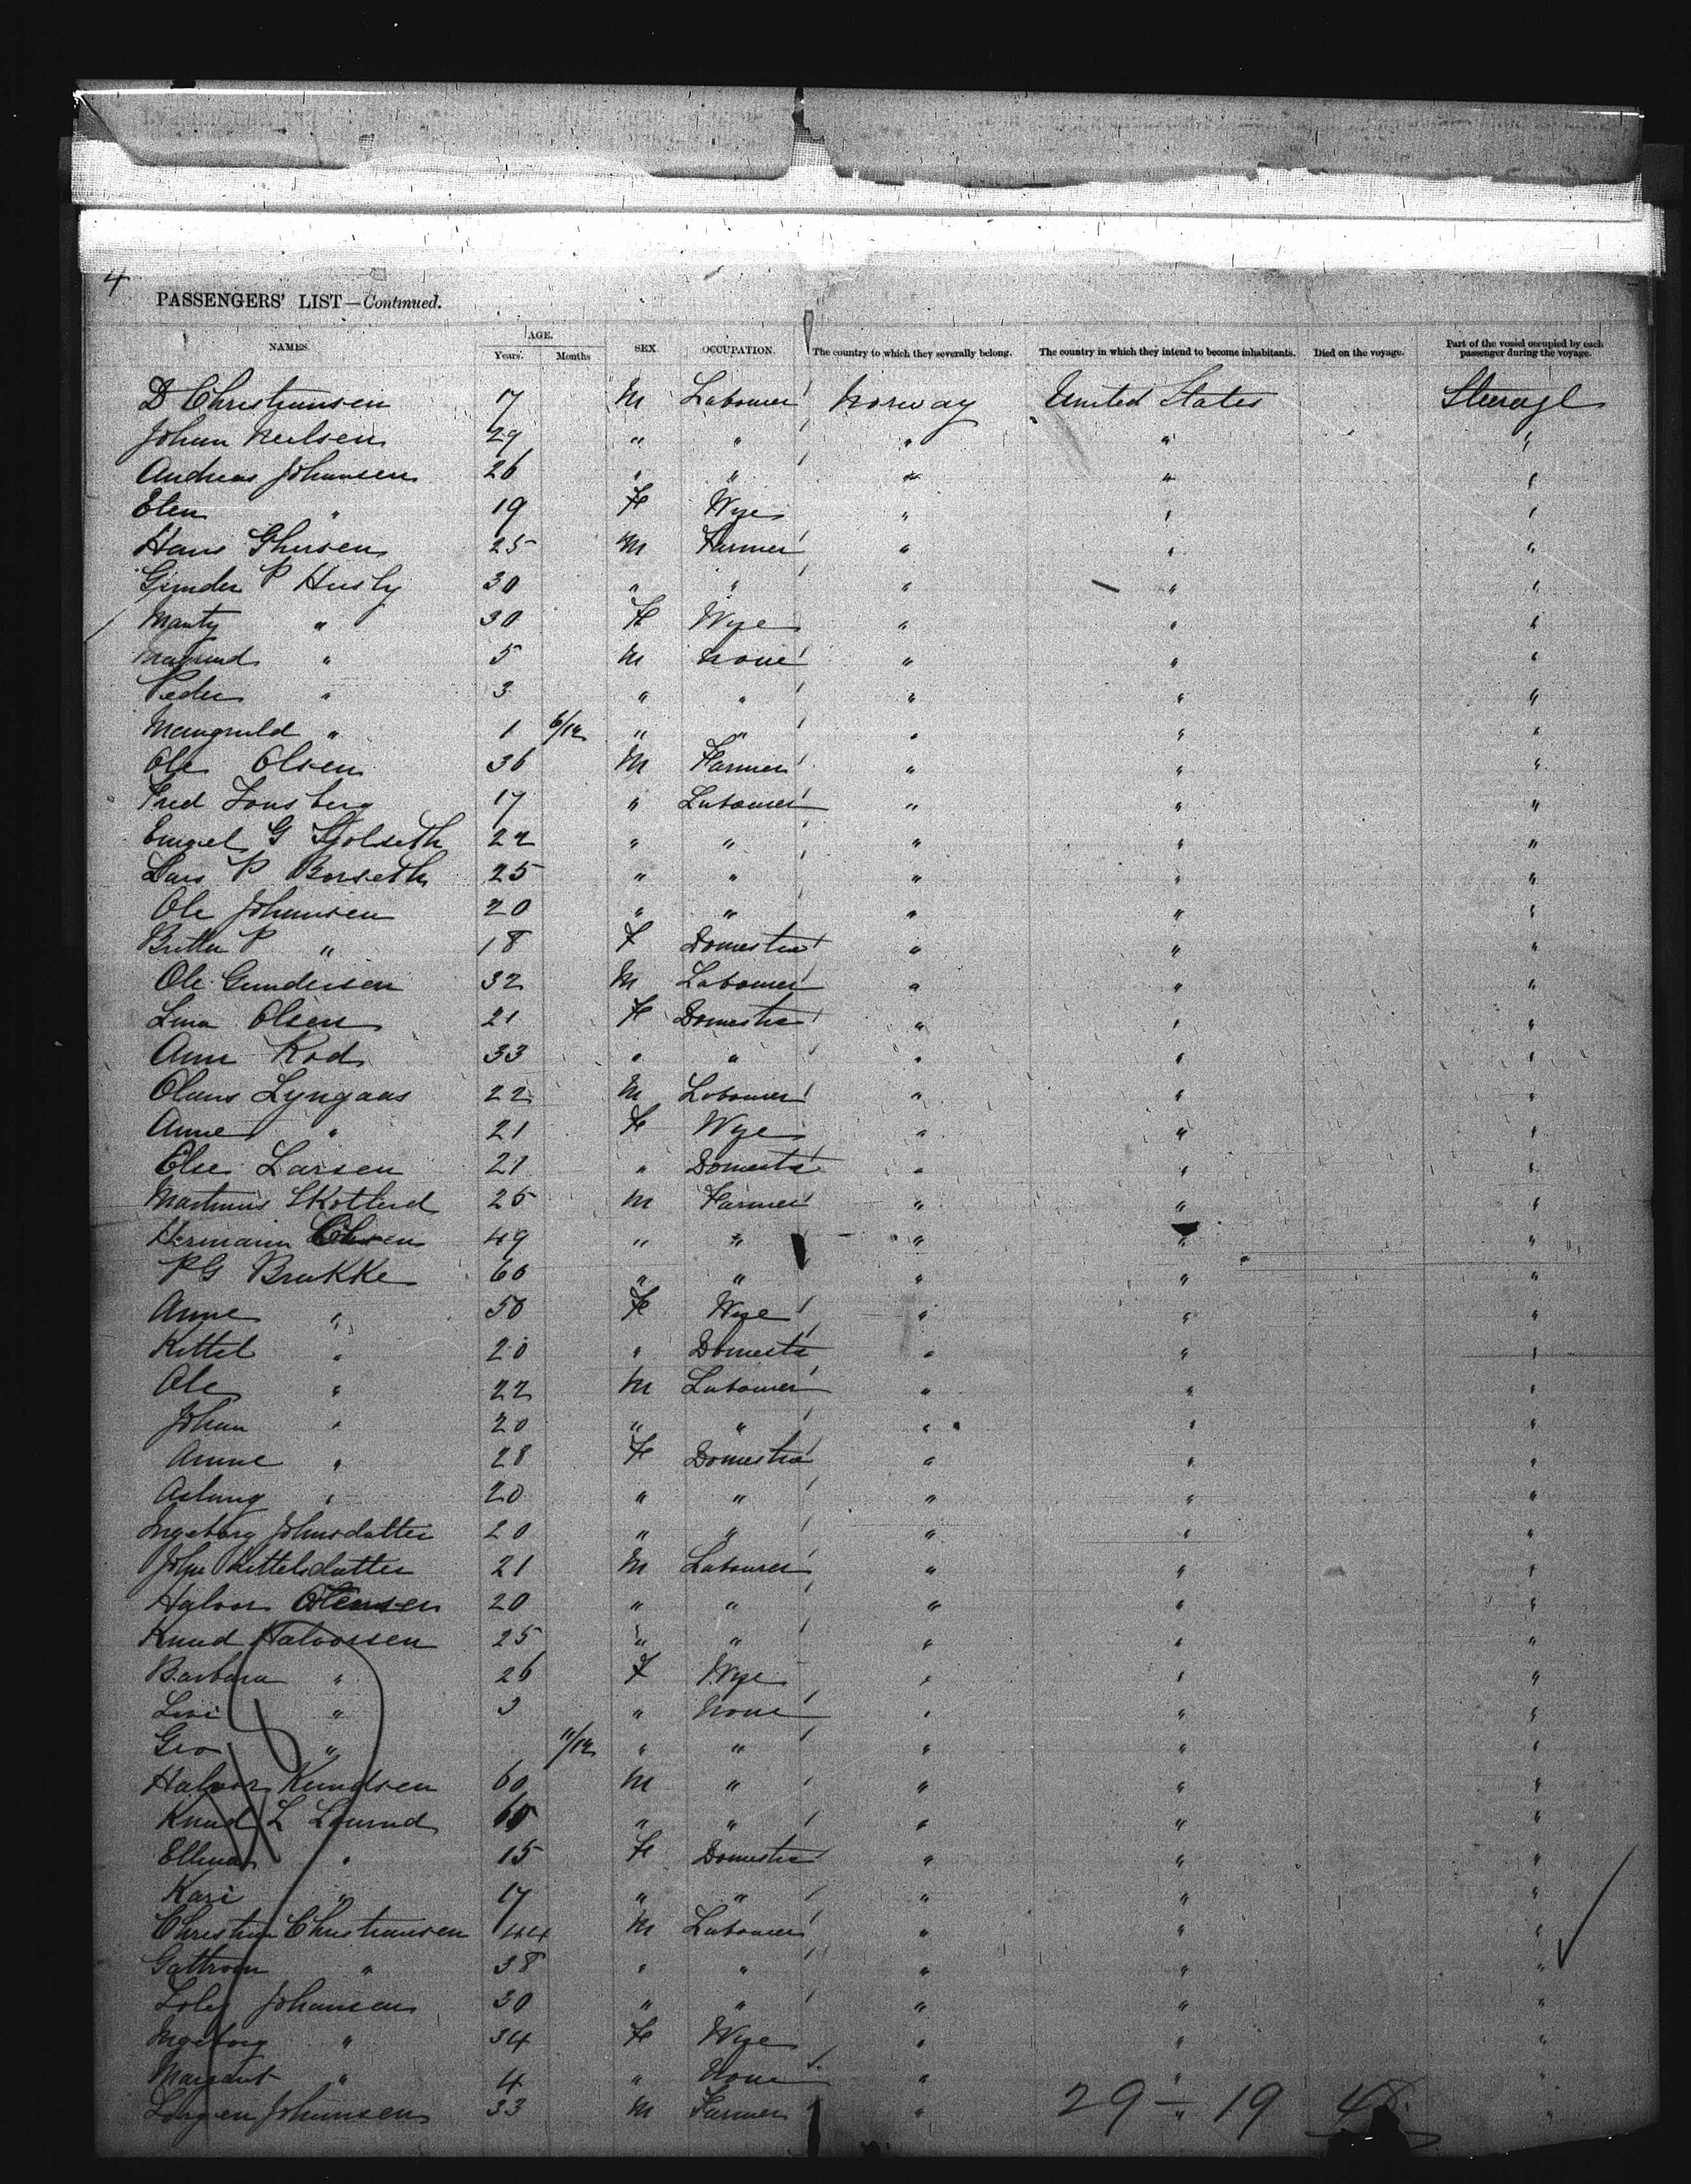 4
PASSENGERS' LIST—Continued.
NAMES. AGE. Years. Months SEX. OCCUPATION. The country to which they severally belong. The country in which they intend to become inhabitants. Died on the voyage. Part of the vessel occupied by each passenger during the voyage.
D Christiansen 17 M Labourer Norway United States Steerage
Johan Neilsen 29 " " " " "
Andreas Johansen 26 " " " " "
Elen " 19 F Wife " " "
Hans 25 M Farmer " " "
P Husby 30 " " " " "
" 30 F Wife " " "
" 5 M None " " "
Peder " 3 " " " " "
" 1 6/12 " " " " "
Ole Olsen 36 M Farmer " " "
Fred Lonsberg 17 " Labourer " " "
G 22 " " " " "
Lars P Borseth 25 " " " " "
Ole Johansen 20 " " " " "
P " 18 F Domestic " " "
Ole Gundersen 32 M Labourer " " "
Lina Olsen 21 F Domestic " " "
Ann Rod 33 " " " " "
Olaus Lyngaas 22 M Labourer " " "
Anne " 21 F Wife " " "
Else Larsen 21 " Domestic " " "
Martinus 25 M Farmer " " "
Hermann 49 " " " " "
PG Brakke 60 " " " " "
Anne " 50 F Wife " " "
Kittel " 20 " Domestic " " "
Ole " 22 M Labourer " " "
Johan " 20 " " " " "
Anne " 28 F Domestic " " "
Aslaug " 20 " " " " "
Ingeborg Johnsdatter 20 " " " " "
John Kittelsdatter 21 M Labourer " " "
Halvor 20 " " " " "
Knud Halvorsen 25 " " " " "
Barbara " 26 F Wife " " "
Livi " 3 " None " " "
Gro " 11/12 " " " " "
Halvor Knudsen 60 M " " " "
Knud L " " " " "
" 15 F Domestic " " "
Kari " 17 " " " " "
Christian Christiansen 44 M Labourer " " "
" 38 " " " " "
Johansen 30 " " " " "
Ingeborg " 34 F Wife " " "
Margant " 4 " None " " "
Johansen 33 M Farmer " " "
29 — 19 48